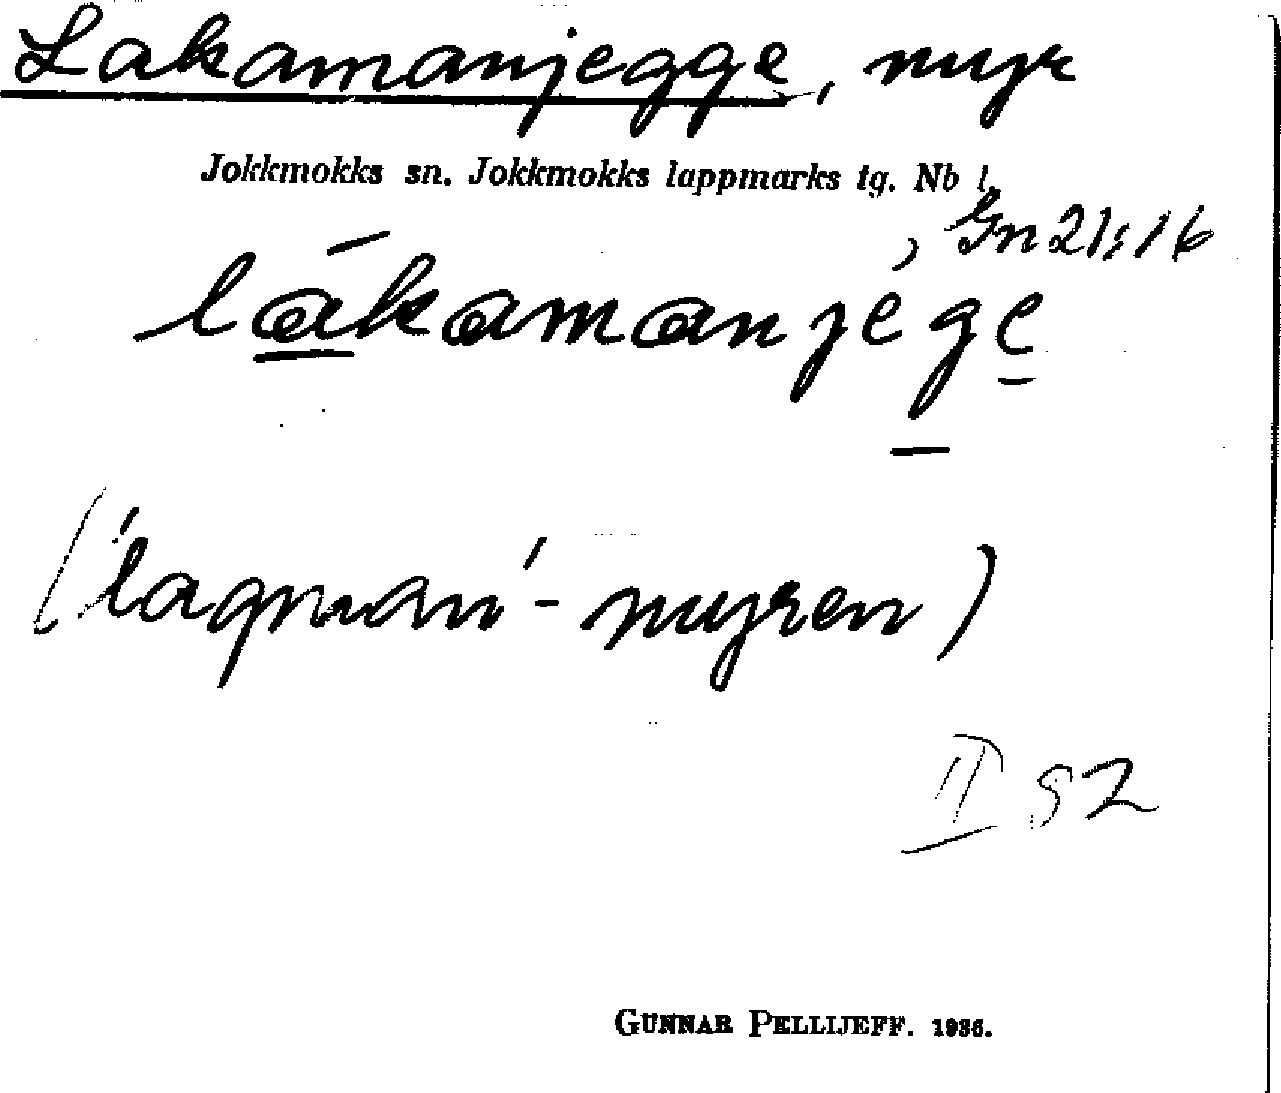 Lakamanjegge, myr
Jokkmokks sn. Jokkmokks lappmarks tg. Nb l.
, Gn 21:16
lākamanjege
('lagman'-myren)
II 52
GUNNAR PELLIJEFF. 1936.